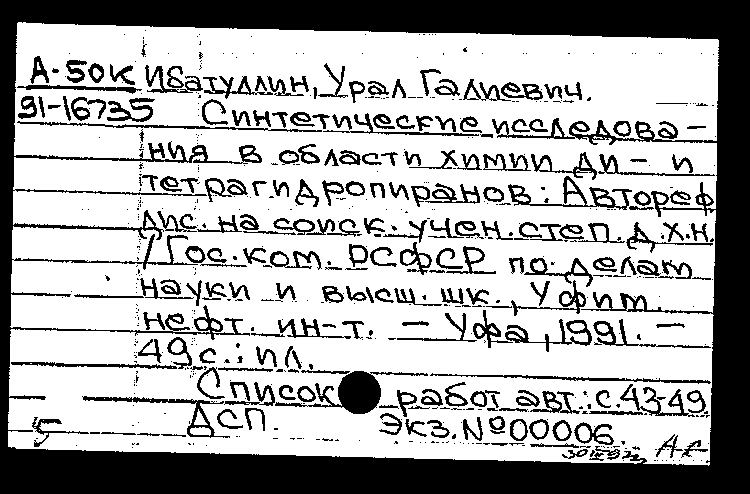 А-50К Ибатуллин, Урал Галиевич.
91-16735 Синтетические исследова-
ния в области химии ди- и
тетрагидропиранов: Автореф
дис. на соиск. учен. степ. д.х.н.
/Гос. ком. РСФСР по делам
науки и высш. шк., Уфим.
нефт. ин-т. – Уфа, 1991. –
49 с.: ил.
Список работ авт.: с.43-49.
ДСП. Экз. №00006.